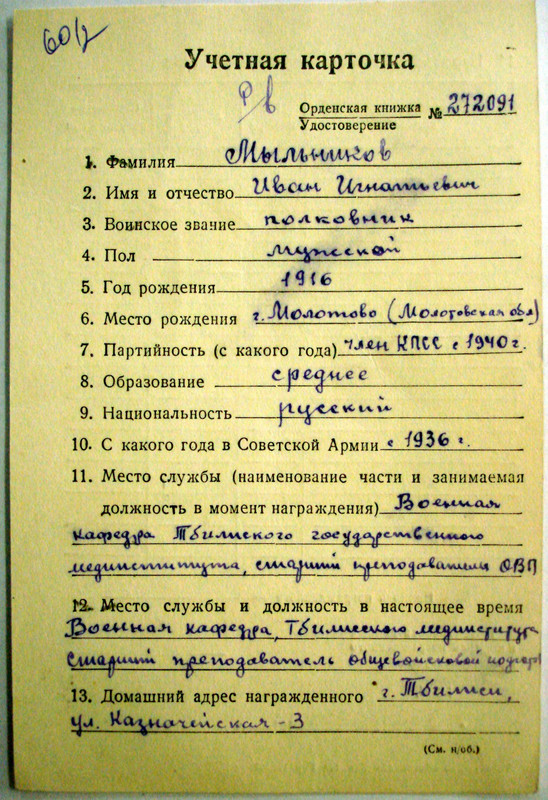 60/2
Учетная карточка
Р/в
Орденская книжка № 272091
Удостоверение
1. Фамилия Мыльников
2. Имя и отчество Иван Игнатьевич
3. Воинское звание полковник
4. Пол мужской
5. Год рождения 1916
6. Место рождения г. Молотово (Молотовская обл)
7. Партийность (с какого года) член КПСС с 1940 г.
8. Образование среднее
9. Национальность русский
10. С какого года в Советской Армии с 1936 г.
11. Место службы (наименование части и занимаемая
должность в момент награждения) Военная
кафедра Тбилиского государственного
мединститута, старший преподаватель ОВП
12. Место службы и должность в настоящее время
Военная кафедра, Тбилисского мединститута
старший преподаватель общевойсковой
13. Домашний адрес награжденного г. Тбилиси,
ул. Казначейская - 3
(См. н/об.)